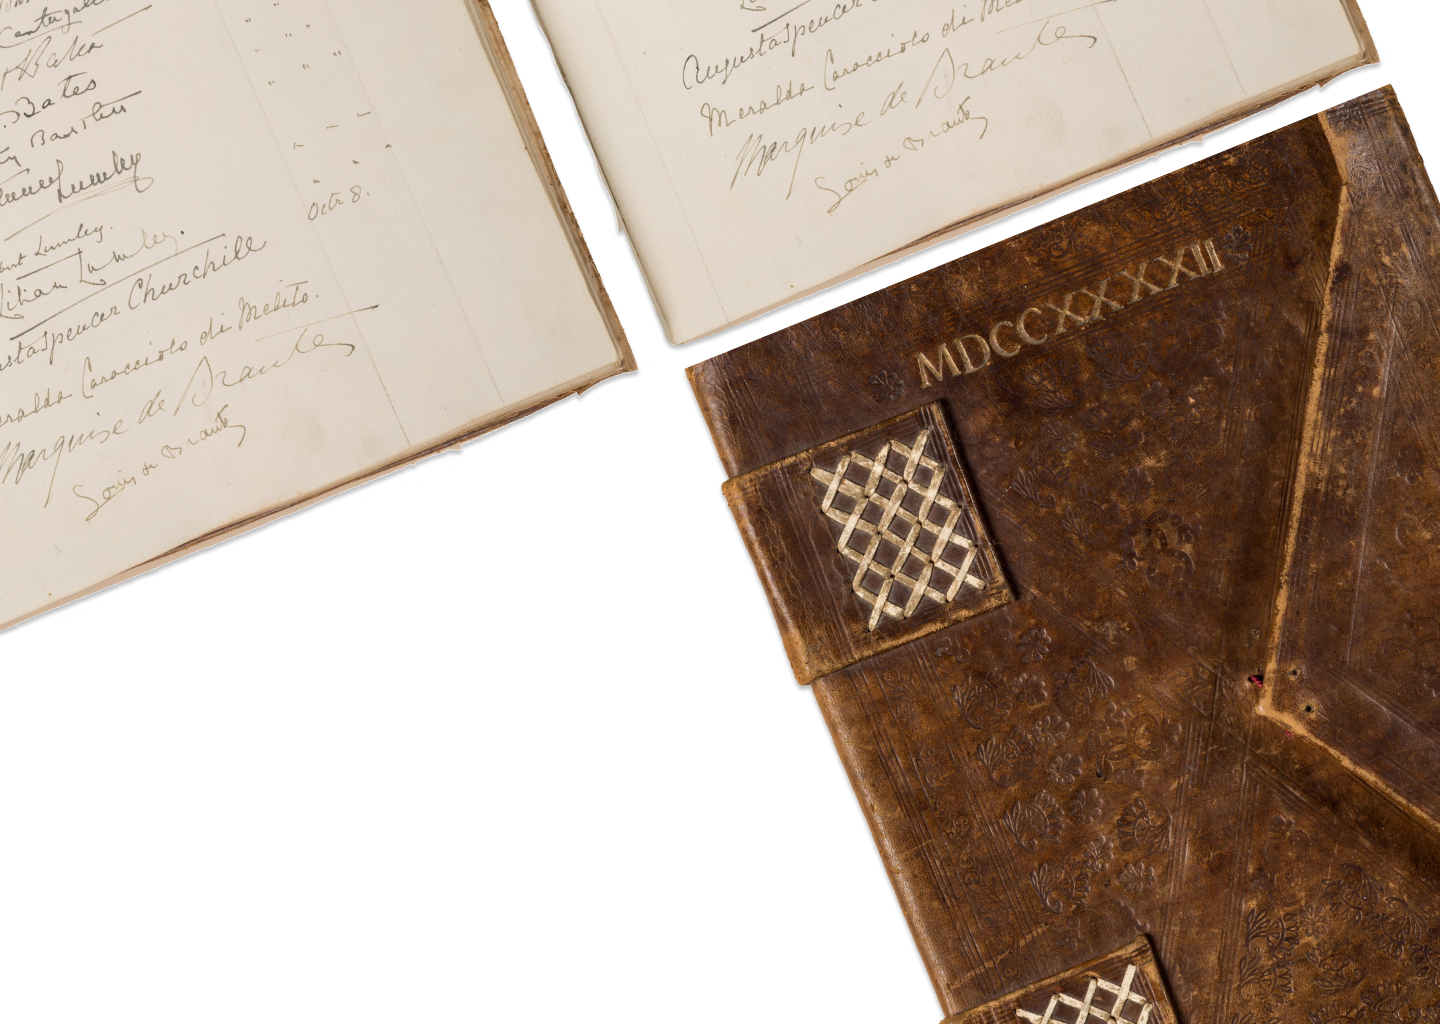 Cantagalli
Bates
Lumley
Lumley.
Lilian Lumley.
Octr 8.
Spencer Churchill
Caracciolo di Melito.
Marquise de Brantes
Louis de Brantes
Augusta Spencer
Meralda Caracciolo di Me
Marquise de Brantes
Louis de Brantes
MDCCXXXXIII